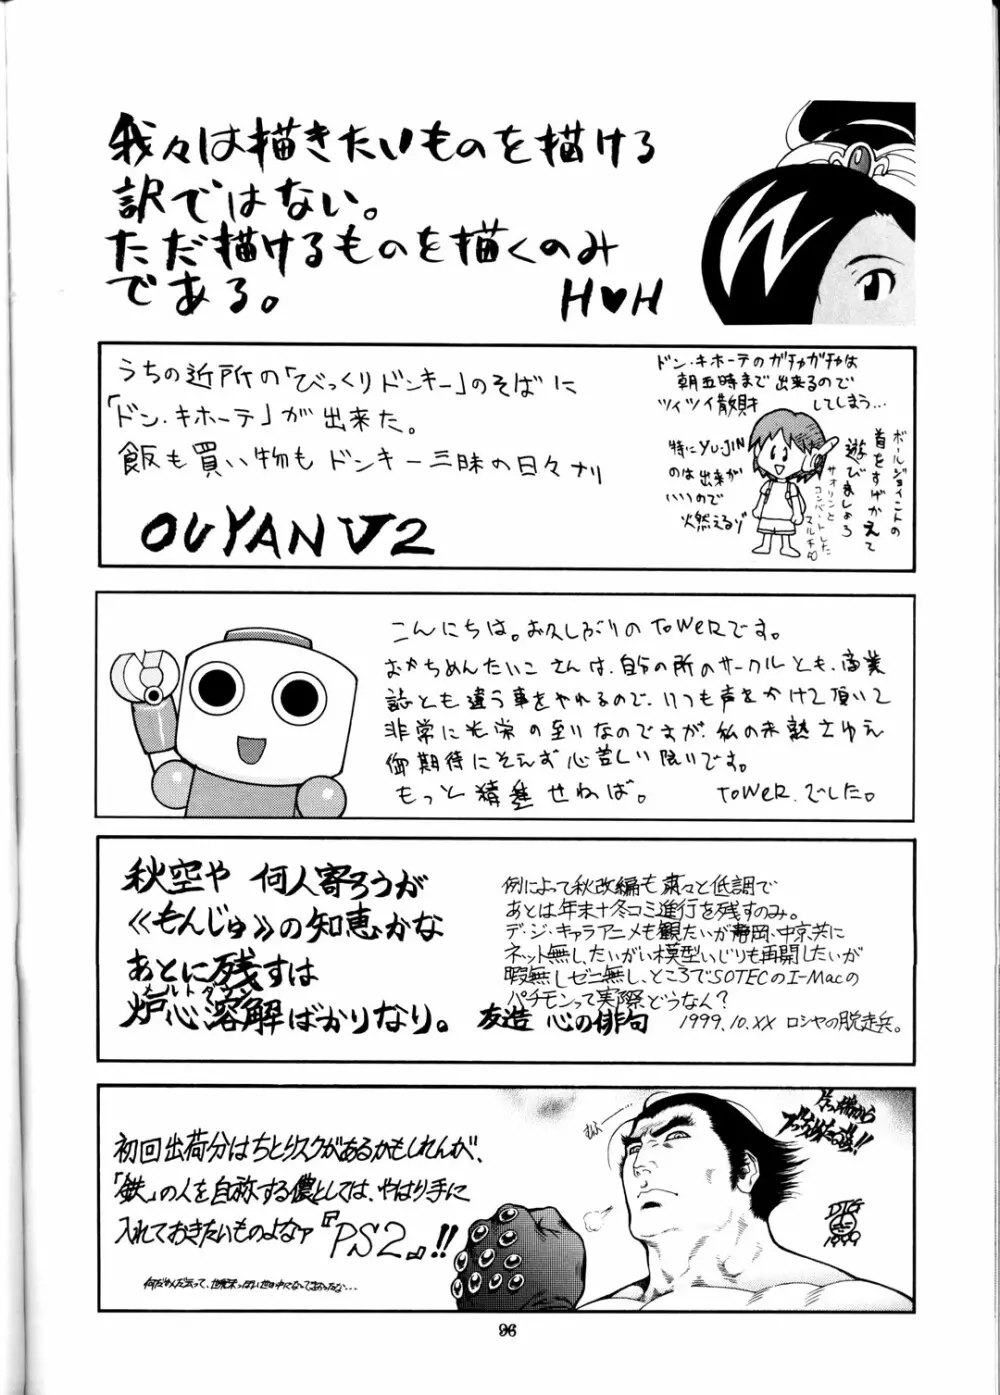 我々は描きたいものを描ける
訳ではない。
ただ描けるものを描くのみ
である。
H♥H
うちの近所の「びっくりドンキー」のそばに
「ドン・キホーテ」が出来た。
飯も買い物もドンキー三昧の日々ナリ
OUYANU2
ドン・キホーテのガチャガチャは
朝五時まで出来るので
ツイツイ散財してしまう…
特にYUJIN
のは出来が
いいので
火燃えるゾ
ボールジョイントの
首をすげかえて
遊びましょう
サオリンと
コンバートした
マルチ
こんにちは。お久しぶりのToWeRです。
おかちめんたいこさんは、自分の所のサークルとも、商業
誌とも違う事をやれるので、いつも声をかけて頂いて
非常に光栄の至りなのですが、私の未熟さゆえ
御期待にそえず心苦しい限りです。
もっと精進せねば。
ToWeR.でした。
秋空や 何人寄ろうが
《もんじゅ》の知恵かな
あとに残すは
メルトダウン
炉心溶解ばかりなり。
友造 心の俳句
例によって秋改編も粛々と低調で
あとは年末+冬コミ進行を残すのみ。
デ・ジ・キャラアニメも観たいが静岡、中京共に
ネット無し、たいがい模型いじりも再開したいが
暇無しゼニ無し、ところでSOTECのI-Macの
パチモンって実際どうなん?
1999.10.XX ロシヤの脱走兵。
初回出荷分はちとリスクがあるかもしれんが、
「鉄」の人を自称する儂としては、やはり手に
入れておきたいものよなァ『PS2』!!
96